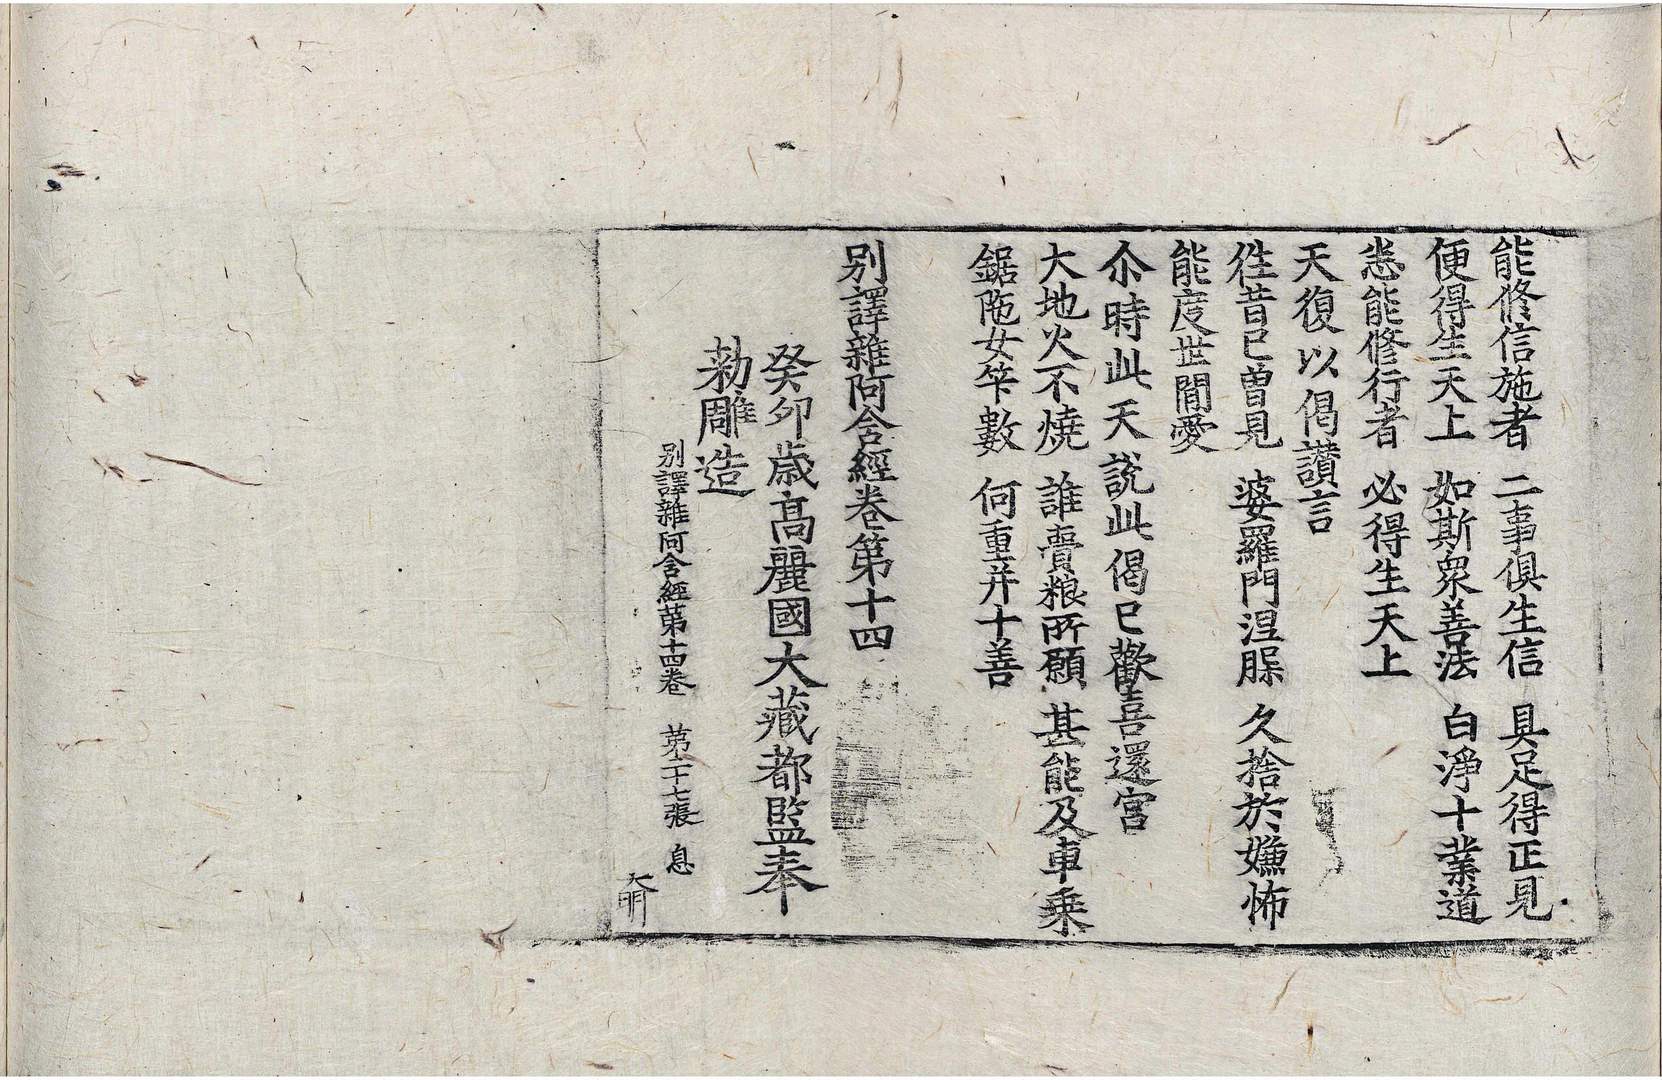 能修信施者 二事俱生信 具足得正見
便得生天上 如斯衆善法 白淨十業道
悉能修行者 必得生天上
天復以偈讃言
徃昔已曾見 婆羅門涅槃 久捨於嫌怖
能度世閒愛
尒時此天說此偈已歡喜還宮
大地火不燒 誰賷粮所願 甚能及車乗
鋸陁女笇數 何重并十善
別譯雜阿含經卷第十四
癸卯歲高麗國大藏都監奉
勅雕造
別譯雜阿含經第十四卷 第二十七張 息
天明